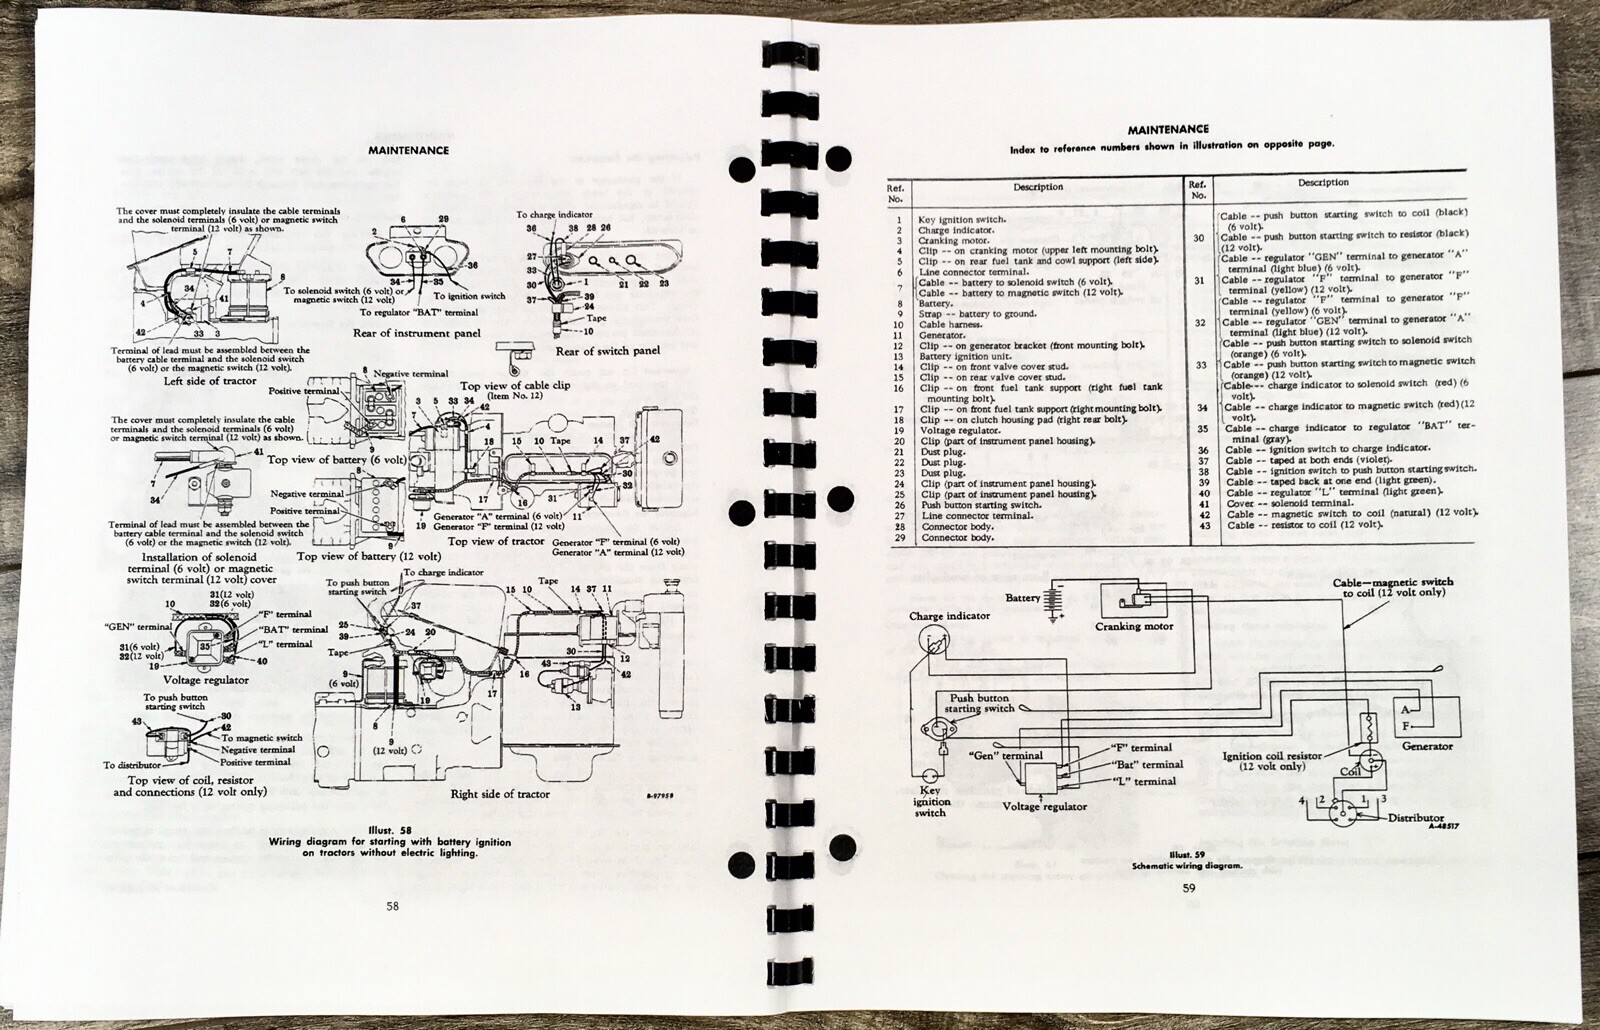 MAINTENANCE
The cover must completely insulate the cable terminals
and the solenoid terminals (6 volt) or magnetic switch
terminal (12 volt) as shown.
5
7
8
34
41
4
42
33
3
Terminal of lead must be assembled between the
battery cable terminal and the solenoid switch
(6 volt) or the magnetic switch (12 volt).
Left side of tractor
6
29
2
36
34
35
To solenoid switch (6 volt) or
magnetic switch (12 volt)
To ignition switch
To regulator "BAT" terminal
Rear of instrument panel
To charge indicator
36
38 28 26
27
33
30
1
21 22 23
37
39
24
Tape
10
Rear of switch panel
Top view of cable clip
(Item No. 12)
8
Negative terminal
Positive terminal
9
Top view of battery (6 volt)
The cover must completely insulate the cable
terminals and the solenoid terminals (6 volt)
or magnetic switch terminal (12 volt) as shown.
41
7
34
Terminal of lead must be assembled between the
battery cable terminal and the solenoid switch
(6 volt) or the magnetic switch (12 volt).
Installation of solenoid
terminal (6 volt) or magnetic
switch terminal (12 volt) cover
8
Negative terminal
Positive terminal
9
Top view of battery (12 volt)
3 5 33 34
42
7
4
18
15 10 Tape 14 37 42
30
32
17
16
31
11
19
Generator "A" terminal (6 volt)
Generator "F" terminal (12 volt)
Top view of tractor
Generator "F" terminal (6 volt)
Generator "A" terminal (12 volt)
31(12 volt)
32(6 volt)
10
"F" terminal
"GEN" terminal
"BAT" terminal
"L" terminal
31(6 volt)
32(12 volt)
35
40
19
Voltage regulator
To push button
starting switch
43
30
42
To magnetic switch
Negative terminal
Positive terminal
To distributor
Top view of coil, resistor
and connections (12 volt only)
To charge indicator
To push button
starting switch
37
25
39
24 20
Tape
15 10 Tape 14 37 11
9
(6 volt)
19
17
16
30
43
12
42
13
8
9
(12 volt)
Right side of tractor
B-97958
Illust. 58
Wiring diagram for starting with battery ignition
on tractors without electric lighting.
58
MAINTENANCE
Index to reference numbers shown in illustration on opposite page.
Ref.
No.
Description
1 Key ignition switch.
2 Charge indicator.
3 Cranking motor.
4 Clip -- on cranking motor (upper left mounting bolt).
5 Clip -- on rear fuel tank and cowl support (left side).
6 Line connector terminal.
7 Cable -- battery to solenoid switch (6 volt).
Cable -- battery to magnetic switch (12 volt).
8 Battery.
9 Strap -- battery to ground.
10 Cable harness.
11 Generator.
12 Clip -- on generator bracket (front mounting bolt).
13 Battery ignition unit.
14 Clip -- on front valve cover stud.
15 Clip -- on rear valve cover stud.
16 Clip -- on front fuel tank support (right fuel tank
mounting bolt).
17 Clip -- on front fuel tank support (right mounting bolt).
18 Clip -- on clutch housing pad (right rear bolt).
19 Voltage regulator.
20 Clip (part of instrument panel housing).
21 Dust plug.
22 Dust plug.
23 Dust plug.
24 Clip (part of instrument panel housing).
25 Clip (part of instrument panel housing).
26 Push button starting switch.
27 Line connector terminal.
28 Connector body.
29 Connector body.
Ref.
No.
Description
30 Cable -- push button starting switch to coil (black)
(6 volt).
Cable -- push button starting switch to resistor (black)
(12 volt).
31 Cable -- regulator "GEN" terminal to generator "A"
terminal (light blue) (6 volt).
Cable -- regulator "F" terminal to generator "F"
terminal (yellow) (12 volt).
32 Cable -- regulator "F" terminal to generator "F"
terminal (yellow) (6 volt).
Cable -- regulator "GEN" terminal to generator "A"
terminal (light blue) (12 volt).
33 Cable -- push button starting switch to solenoid switch
(orange) (6 volt).
Cable -- push button starting switch to magnetic switch
(orange) (12 volt).
34 Cable--- charge indicator to solenoid switch (red) (6
volt).
Cable -- charge indicator to magnetic switch (red) (12
volt).
35 Cable -- charge indicator to regulator "BAT" ter-
minal (gray).
36 Cable -- ignition switch to charge indicator.
37 Cable -- taped at both ends (violet).
38 Cable -- ignition switch to push button starting switch.
39 Cable -- taped back at one end (light green).
40 Cable -- regulator "L" terminal (light green).
41 Cover -- solenoid terminal.
42 Cable -- magnetic switch to coil (natural) (12 volt).
43 Cable -- resistor to coil (12 volt).
Battery
Cranking motor
Cable—magnetic switch
to coil (12 volt only)
Charge indicator
Push button
starting switch
"Gen" terminal
"F" terminal
"Bat" terminal
"L" terminal
Key
ignition
switch
Voltage regulator
Ignition coil resistor
(12 volt only)
Coil
A
F
Generator
4 2 1 3
Distributor
A-48517
Illust. 59
Schematic wiring diagram.
59